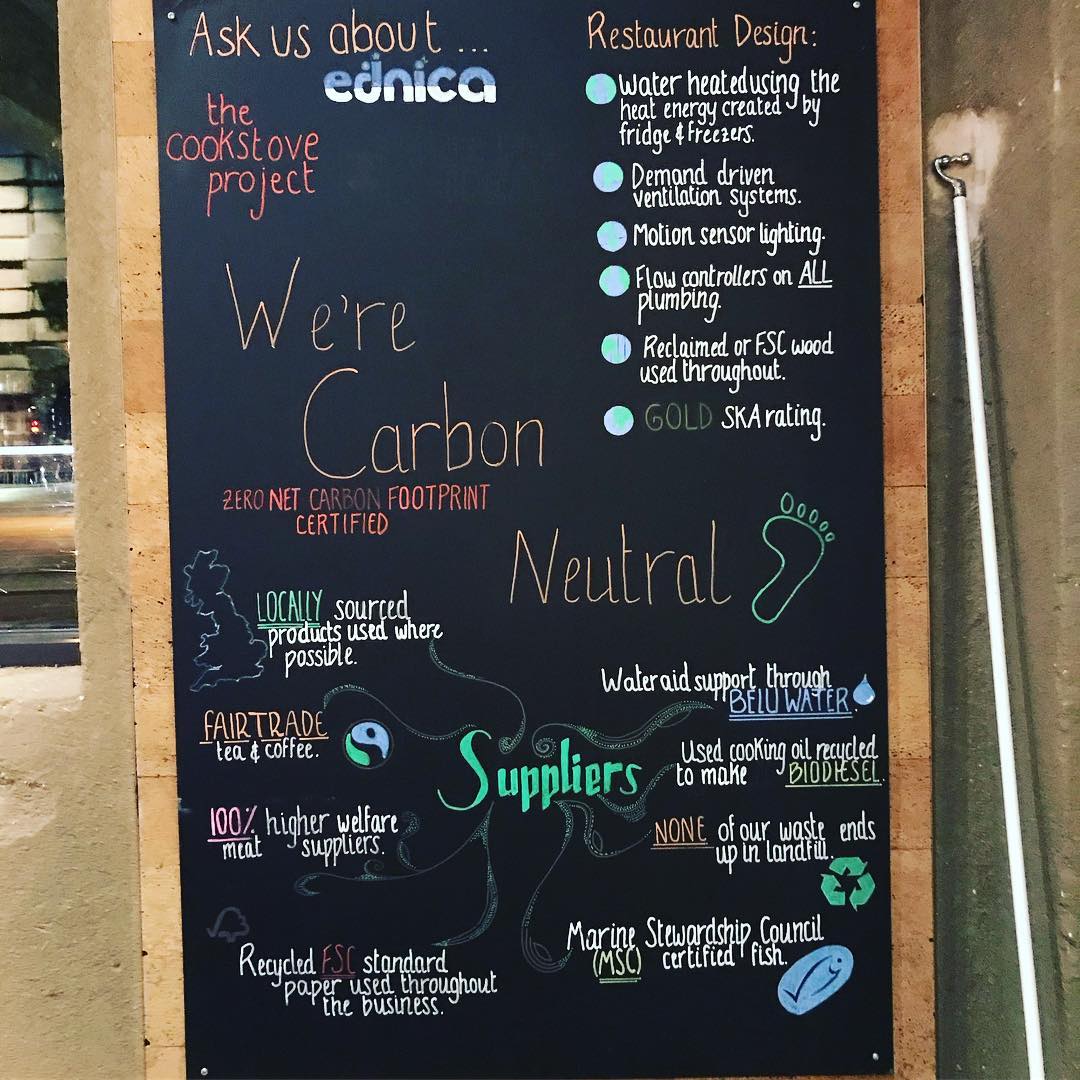 Ask us about ...
ednica
the
cookstove
project
Restaurant Design:
Water heated using the
heat energy created by
fridge & freezers.
Demand driven
ventilation systems.
Motion sensor lighting.
Flow controllers on ALL
plumbing.
Reclaimed or FSC wood
used throughout.
GOLD SKA rating.
We're
Carbon
Neutral
ZERO NET CARBON FOOTPRINT
CERTIFIED
LOCALLY sourced
products used where
possible.
FAIRTRADE
tea & coffee.
100% higher welfare
meat suppliers.
Recycled FSC standard
paper used throughout
the business.
Suppliers
Wateraid support through
BELU WATER.
Used cooking oil recycled
to make BIODIESEL.
NONE of our waste ends
up in landfill.
Marine Stewardship Council
(MSC) certified fish.